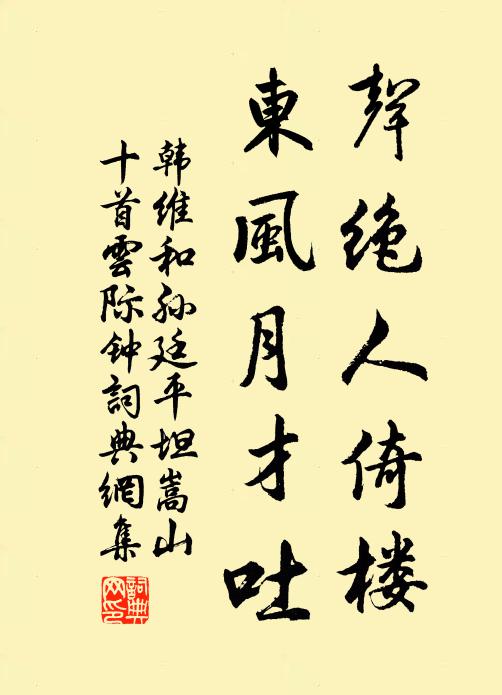 聲绝人倚楼
東風月才吐
韩维和孙廷平坦嵩山
十首雲际钟詞典網集
詞典网印